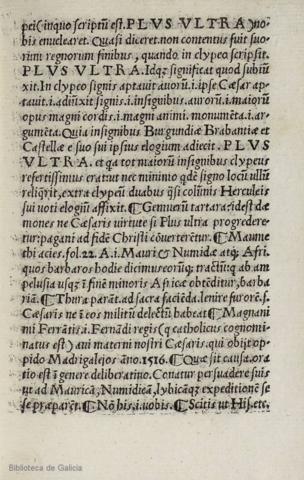 pei(inquo scriptũ est.PLVS VLTRA)no/
bis enuclearet. Quasi diceret. non contentus fuit suo/
rum regnorum finibus, quando in clypeo scripsit.
PLVS VLTRA. Idqȝ significat quod subiũ
xit. In clypeo signis aptauit auorũ.i. ipse Cæsar ap/
tauit.i. adiũxit signis.i. insignibus. auorũ.i. maiorũ
opus magni cordis.i. magni animi. monumẽta.i. ar/
gumẽta. Quia insignibus Burgundiæ Brabantiæ et
Castellæ e suo sui ipsius elogium adiecit. PLVS
VLTRA. et qa tot maiorũ insignibus clypeus
refertissimus erat ut nec minimo qdẽ signo locũ ullũ
reliq̃rit, extra clypeũ duabus q̃si colũnis Herculeis
sui voti elogiũ affixit. ¶ Gemuerũt tartara: idest dæ
mones ne Cæsaris virtute si Plus ultra progredere/
tur: pagani ad fidẽ Christi cõuerterẽtur. ¶ Maume
thi acies. fol. 22. A.i. Mauri & Numidæ atqȝ Afri/
quos barbaros hodie dicimus eorũqȝ tractũ: qȝ ab am
pelusia usqȝ ĩ finẽ minoris Africæ obtẽditur, barba/
riã. ¶ Thura parãt. ad sacra faciẽda. lenire furorẽ.s.
Cæsaris ne ĩ eos militũ delectũ habeat ¶ Magnani
mi Ferrãtis.i. Fernãdi regis (q catholicus cognomi/
natus est) aui materni nostri Cæsaris. qui obijt op/
pido Madrigalejos ãno. 1516. ¶ Quæ sit causa. ora/
tio est ĩ genere deliberatiuo. Conatur persuadere suis
ut ad Mauricã, Numidicã, lybicãqȝ expeditionẽ se
se præparẽt. ¶ Nõ his.i. uobis. ¶ Scitis ut His. etc.
Biblioteca de Galicia